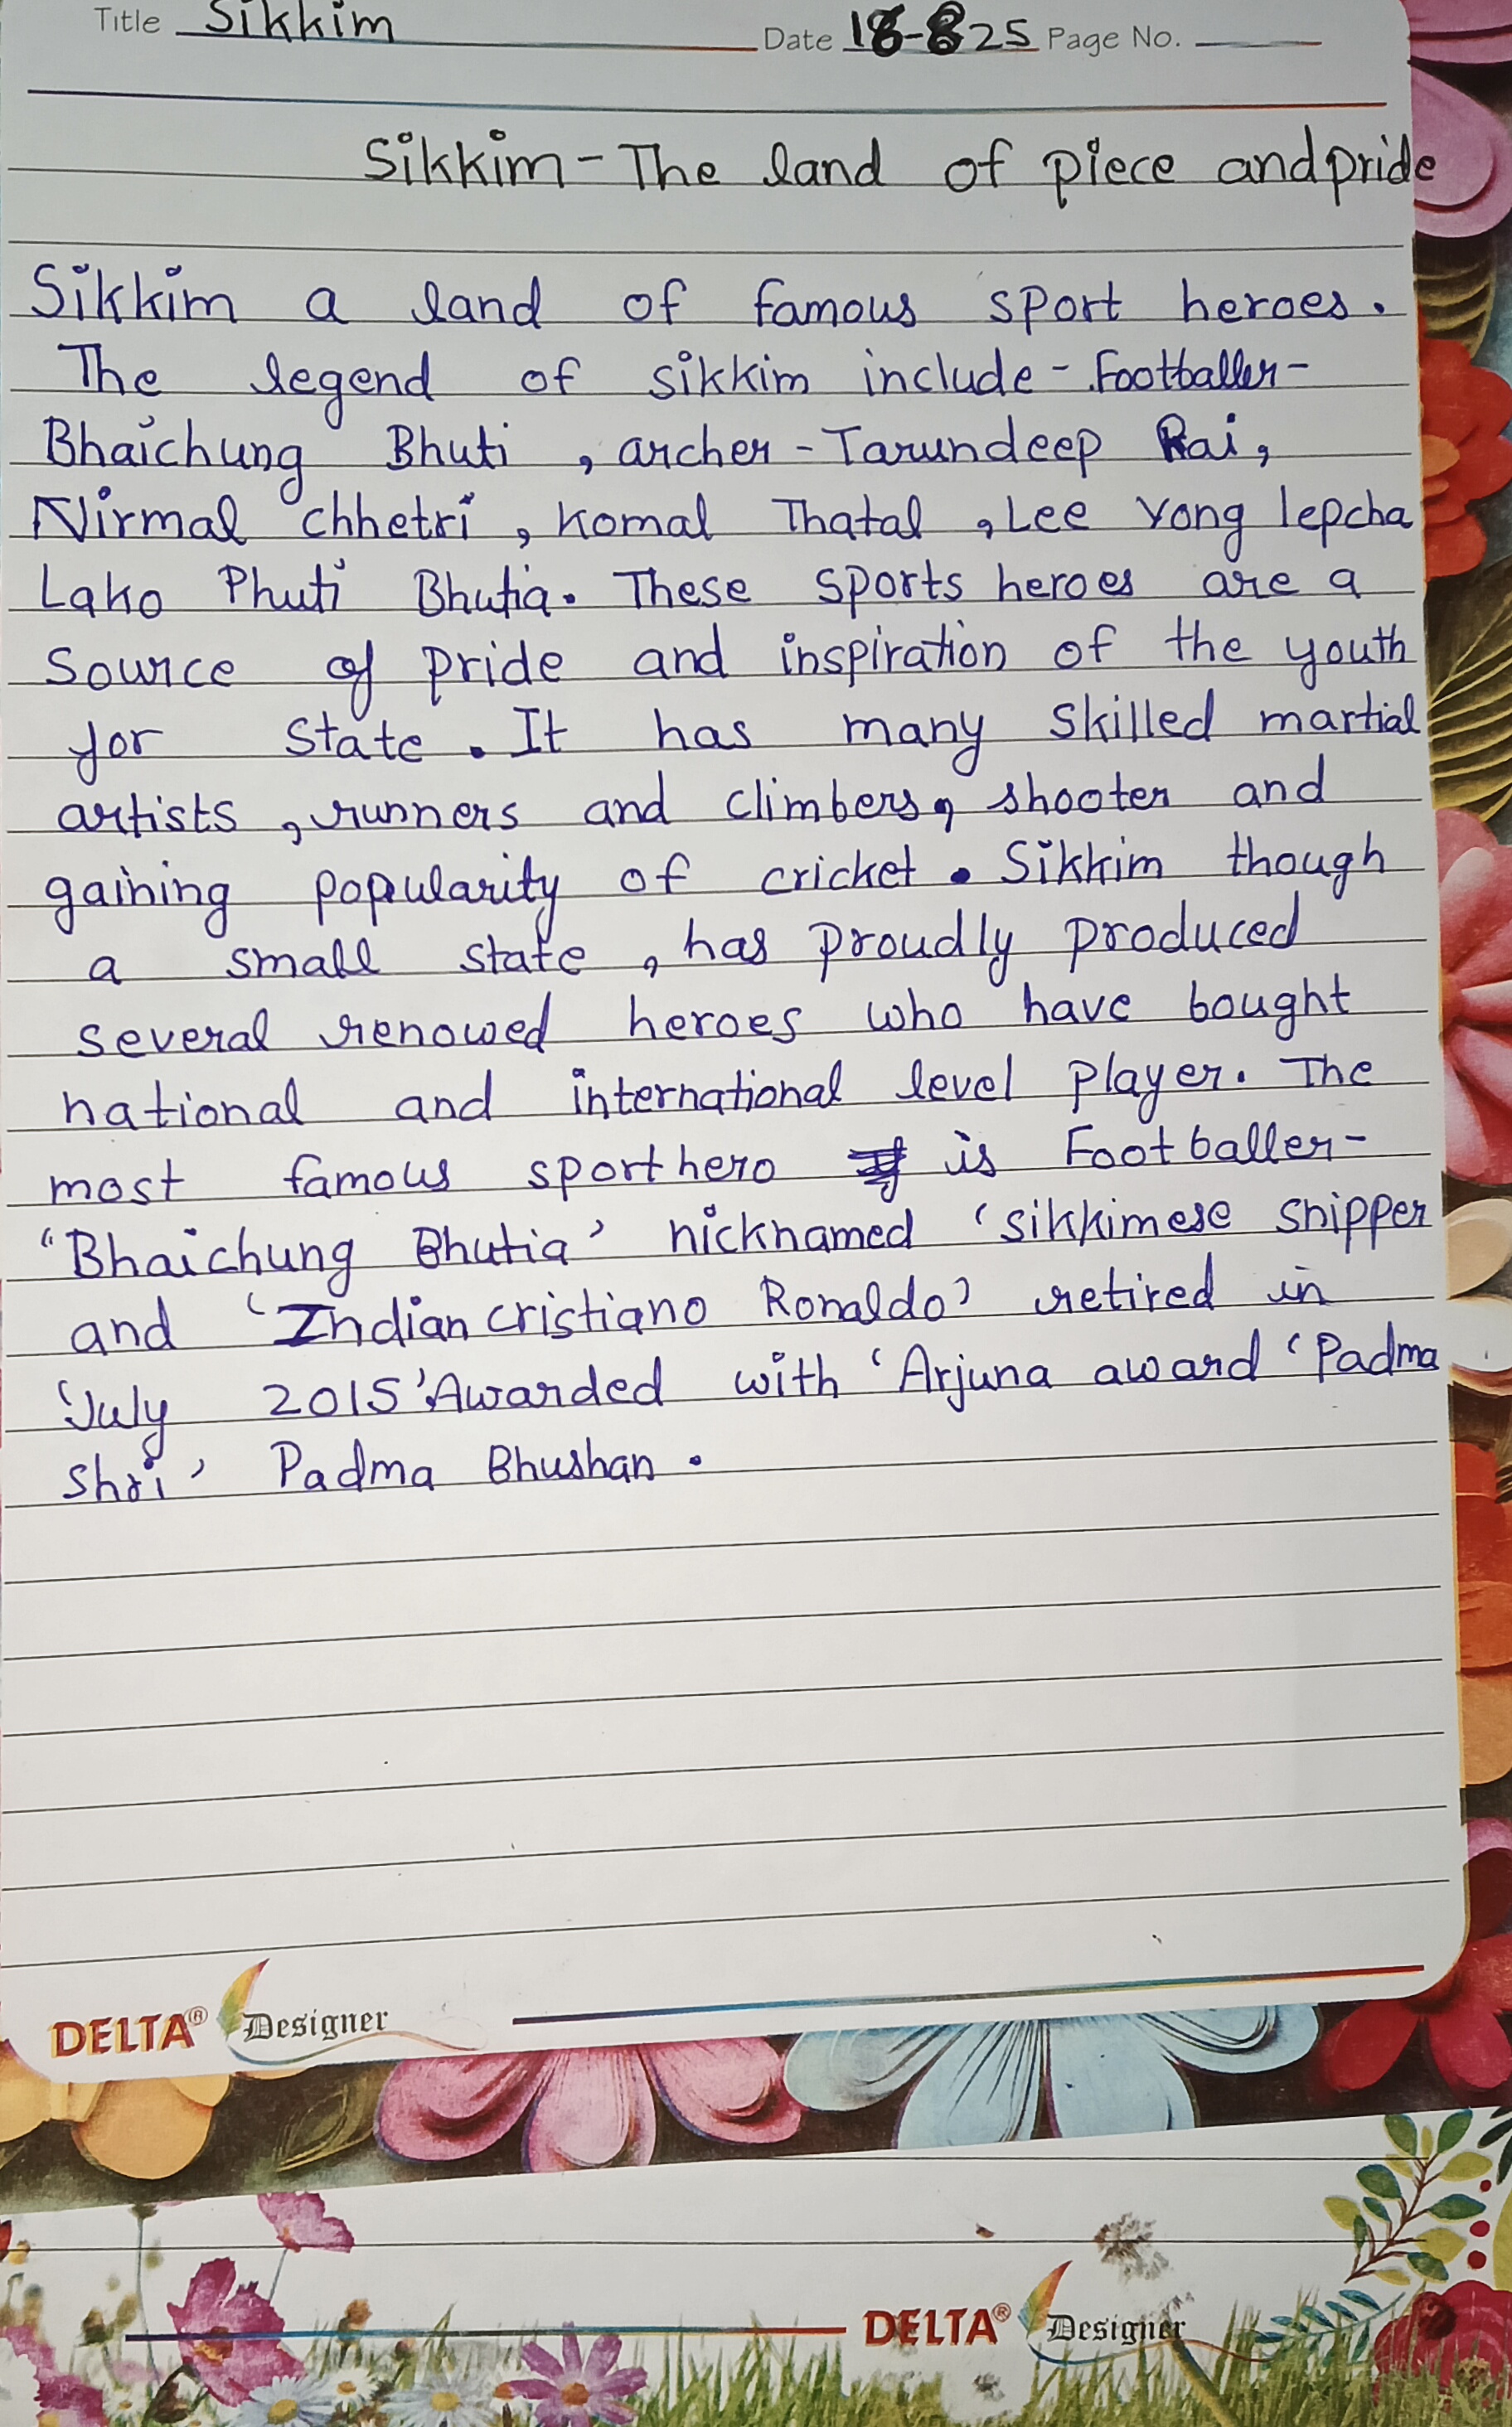 Title Sikkim Date 18-825 Page No.
Sikkim - The land of piece and pride
Sikkim a land of famous sport heroes.
The legend of sikkim include - Footballer -
Bhaichung Bhuti , archer - Tarundeep Rai,
Nirmal chhetri , Komal Thatal , Lee Yong lepcha
Lako Phuti Bhutia. These sports heroes are a
source of pride and inspiration of the youth
for state . It has many skilled martial
artists , runners and climbers, shooter and
gaining popularity of cricket . Sikkim though
a small state , has proudly produced
several renowed heroes who have bought
national and international level player. The
most famous sport hero is Footballer -
"Bhaichung Bhutia' nicknamed 'sikkimese snipper
and 'Indian cristiano Ronaldo' retired in
'July 2015'. Awarded with 'Arjuna award 'Padma
Shri' Padma Bhushan .
DELTA® Designer
DELTA® Designer